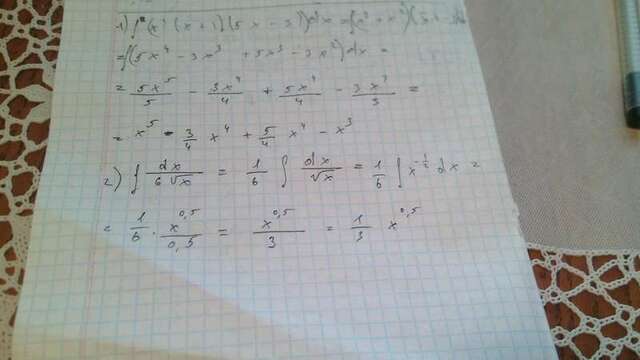 1) ∫ x² (x + 1)(5x − 3) dx = ∫(x³ + x²)(5x −
= ∫(5x⁴ − 3x³ + 5x³ − 3x²) dx =
= 5x⁵/5 − 3x⁴/4 + 5x⁴/4 − 3x³/3 =
= x⁵ − 3/4 x⁴ + 5/4 x⁴ − x³
2) ∫ dx/(6√x) = 1/6 ∫ dx/√x = 1/6 ∫ x^(-1/2) dx =
= 1/6 · x^0,5/0,5 = x^0,5/3 = 1/3 x^0,5